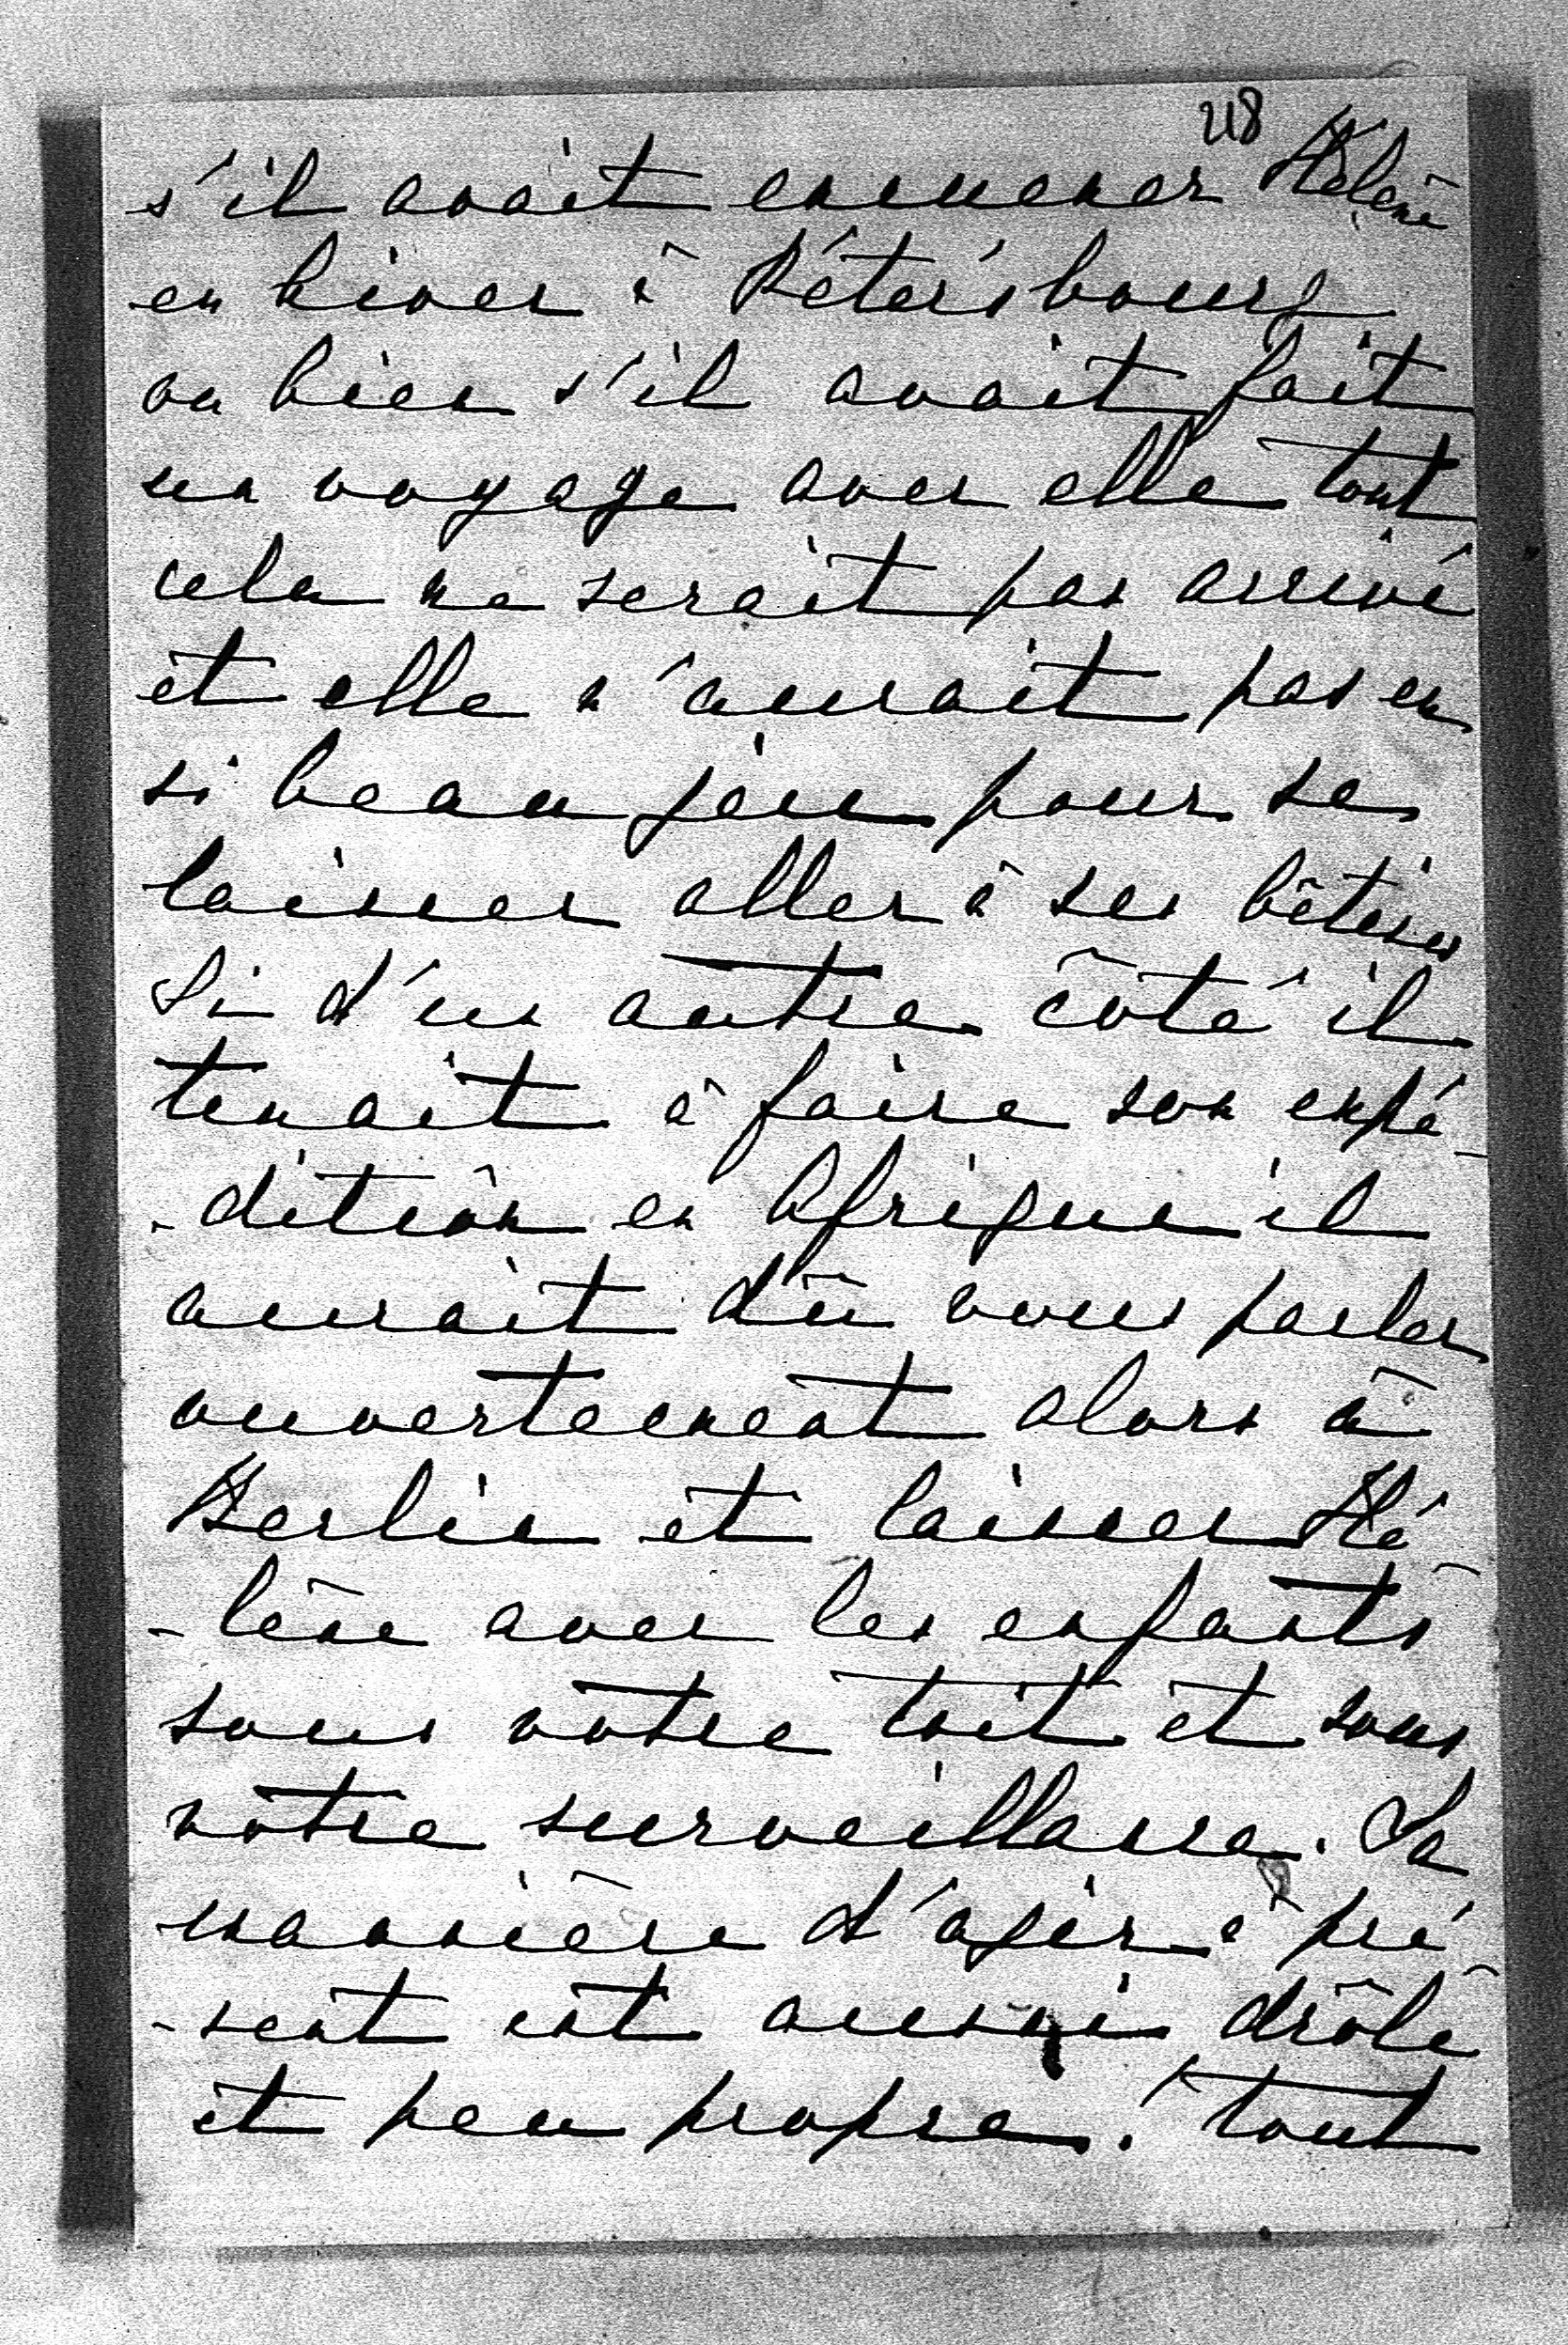 218
s'il avait emmener Hélène
en hiver à Pétersbourg
ou bien s'il avait fait
un voyage avec elle tout
cela ne serait pas arrivé
et elle n'aurait pas eu
si beau jeu pour se
laisser aller à ses bêtises
Si d'un autre côté il
tenait à faire son expé-
-dition en Afrique il
aurait dû vous parler
ouvertement alors à
Berlin et laisser Hé-
-lène avec les enfants
sous votre toit et sous
votre surveillance. Sa
manière d'agir à pré-
-sent est aussi drôle
et peu propre! tout